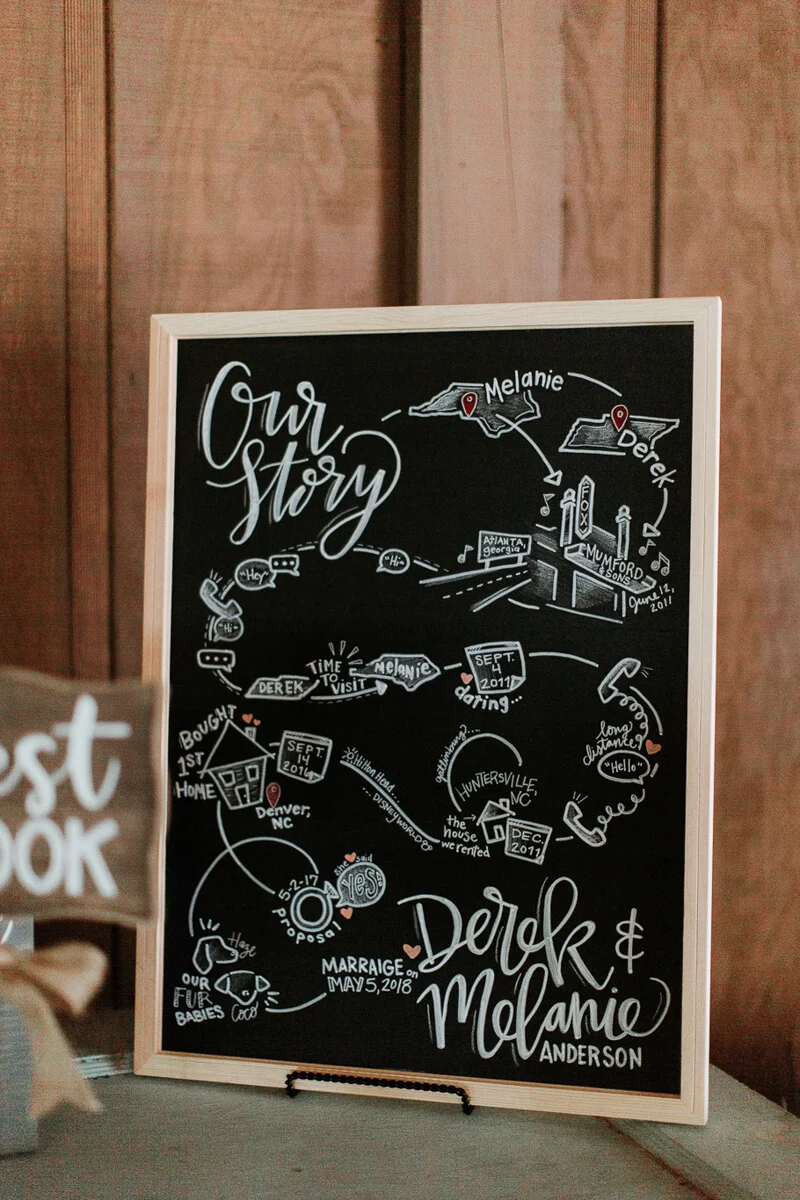 Our
Story
Melanie
Derek
FOX
MUMFORD
& SONS
June 12,
2011
ATLANTA,
georgia
"Hi"
"Hey"
"Hi"
DEREK
TIME
TO
VISIT
Melanie
SEPT.
4
2011
dating...
long
distance
"Hello"
DEC.
2011
the
house
we rented
HUNTERSVILLE,
NC
gatlinburg?...
Hilton Head...
...DISNEY WORLD
BOUGHT
1ST
HOME
SEPT.
14
2016
Denver,
NC
5-2-17
proposal
she said
"Yes"
OUR
FUR
BABIES
Haze
Coco
MARRAIGE on
MAY 5, 2018
Derek &
Melanie
ANDERSON
est
OOK